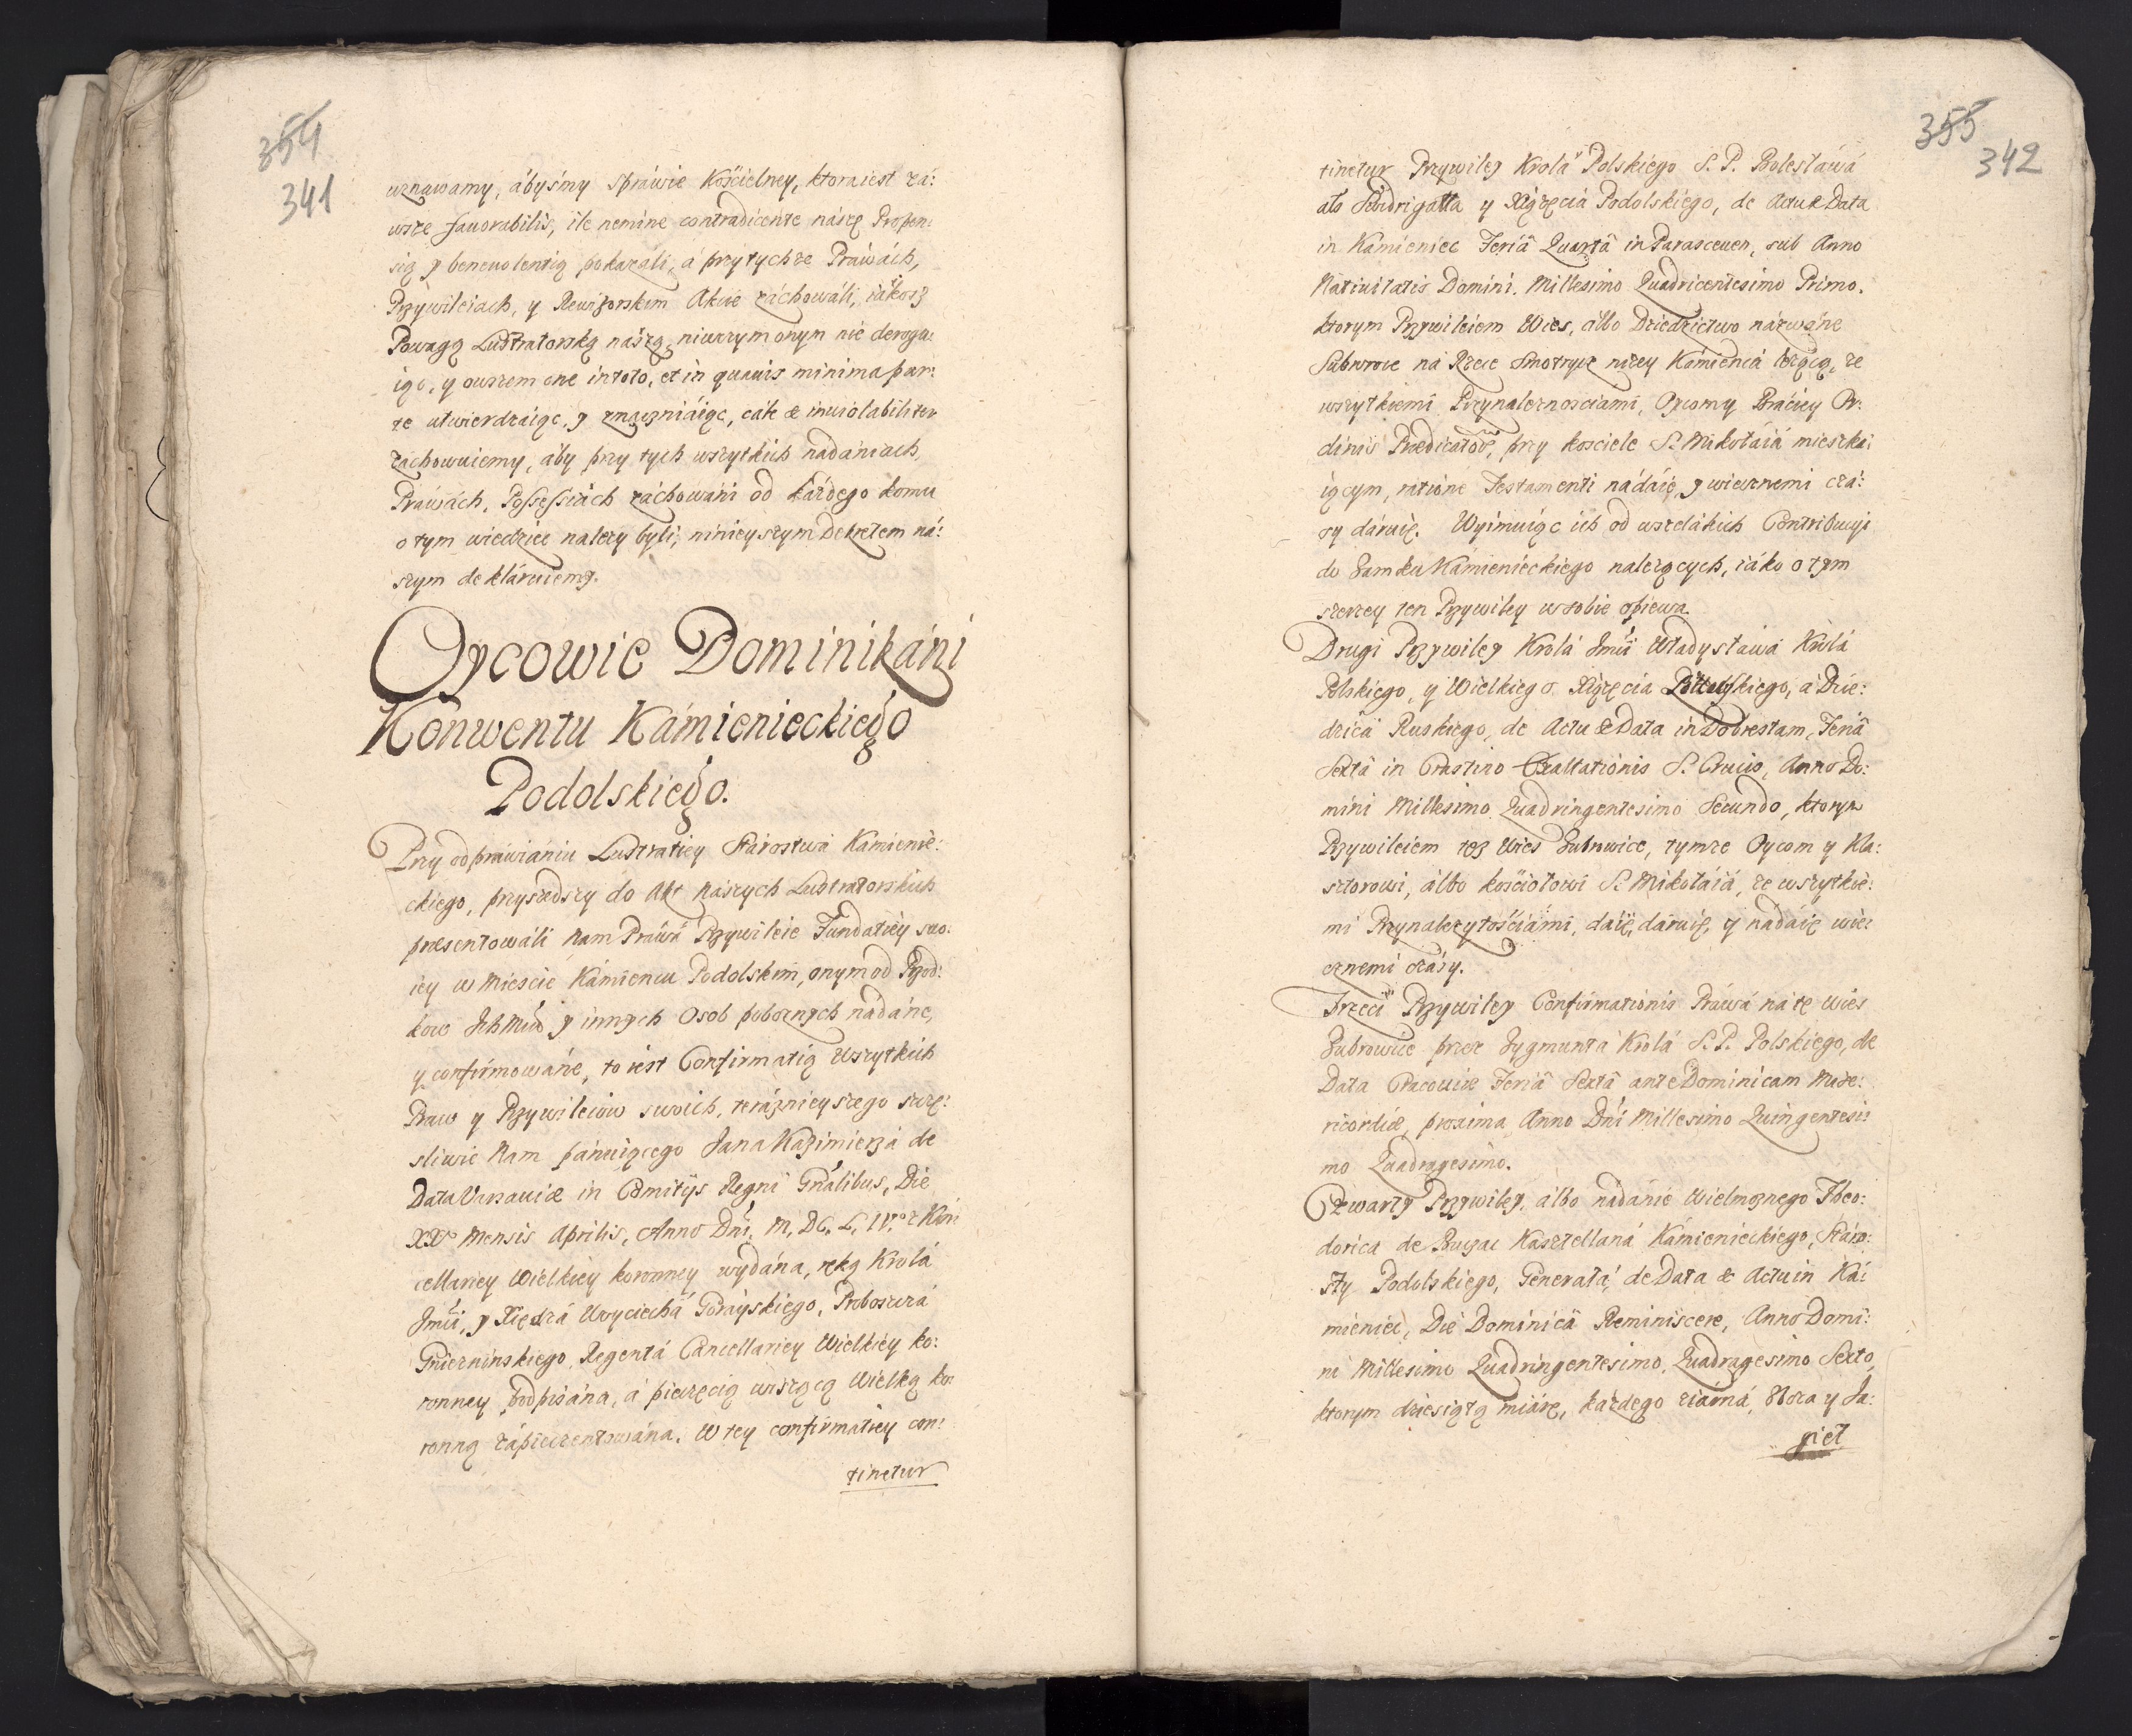 354
341
uznawamy, ábyśmy spráwie Kośćielney, ktora iest zá:
wsze fauorabilis, ile nemine contradicente nászę Propen:
sią y beneuolentią pokazáli, á przy tychże Práwách,
Przywileiach, y Rewizorskim Akcie záchowáli, iákosz
Powagą Lustratorską nászą, niwczym onym nie deroga:
iąc, y owszem one in toto, et in quauis minima par:
te utwierdzáiąc, y zmaczniáiąc, całe & inuiolabiliter
záchowuiemy, áby przy tych wszytkich nadániach,
Práwách, Possessiách záchowáni od káżdego komu
o tym wiedzieć należy byli, ninieyszym Dekretem ná:
szym deklaruiemy.
Oycowie Dominikáni
Konwentu Kámienieckiego
Podolskiego.
Przy odpráwianiu Lustratiey Stárostwá Kámienie:
ckiego, przyszedszy do Akt Nászych Lustratorskich
præsentowáli Nam Práwá Przywileie Fundatiey swo:
iey w Mieście Kámiencu Podolskim, onym od Przod:
kow JchMći y innych Osob pobożnych nádáne,
y confirmowáne, to iest Confirmatią wszytkich
Praw y Przywileiow swoich, teráznieyszego szczę:
śliwie Nam pánuiącego Jana Kazimierzá de
Data Varsauiæ in Comitijs Regni Gnalibus, Die
XX Mensis Aprilis, Anno Dni, M. DC. L. IV.º z Kan:
cellariey Wielkiey koronney wydána, ręką Krolá
Jmći, y Xiędzá Woyciechá Goráyskiego, Proboszczá
Gnieznińskiego, Regentá Cancellariey Wielkiey ko:
ronney podpisána, á pieczęcią wiszącą Wielką ko:
ronną zápieczentowána. W tey confirmatiey con:
tinetur
355
342
tinetur Przywiley Krolá Polskiego S. P. Bolesławá
álo Swidrigałła y Xiążęciá Podolskiego, de Actu & Data
in Kámieniec Feriâ Quartâ in Parasceuen, sub Anno
Natiuitatis Domini Millesimo Quadricentesimo Primo.
ktorym Przywileiem Wies, álbo Dziedzictwo názwáne
Zubrowce ná Rzece Smotrycz niżey Kámiencá leżącą, ze
wszytkiemi Przynależnosciami, Oycomy Bráciey Or:
dinis Prædicator, przy kościele S. Mikołáiá mieszká:
iącym, ratione Testamenti nádáię, y wiecznemi czá:
sy dáruię. Wyimuiąc ich od wszelákich Contribucyi
do Zamku Kámienieckiego należących, iáko o tym
szerzey ten Przywiley w sobie opiewa.
Drugi Przywiley Krolá Jmći Władysławá Krolá
Polskiego, y Wielkiego Xiążęcia Podolskiego, á Dzie:
dzicá Ruskiego, de Actu & Data in Dobrestam, Feriâ
Sextâ in Crastino Exaltationis S. Crucis, Anno Do:
mini Millesimo Quadringentesimo Secundo, ktorym
Przywileiem tęż Wies Zubrowice, tymże Oycom y Kla:
sztorowi, álbo kościołowi S. Mikołáiá, ze wszytkie:
mi Przynależytościámi, dáię, dáruię, y nádáię wie:
cznemi czásy.
Trzeci Przywiley Confirmationis Práwá ná tę wies
Zubrowice przez Zygmuntá Krolá S. P. Polskiego, de
Data Cracouiæ Feriâ Sextâ ante Dominicam Mise:
ricordiæ, proxima Anno Dni Millesimo Quingentesi:
mo Quadragesimo.
Czwarty Przywiley, álbo nádánie Wielmożnego Theo:
dorica de Buczac Kasztellaná Kámienieckiego, Stáro:
sty Podolskiego, Generałá, de Data & Actu in Ká:
mieniec, Die Dominicâ Reminiscere, Anno Domi:
ni Millesimo Quadringentesimo Quadragesimo Sexto,
ktorym dziesiątą miárę, káżdego ziárná, Zboża y Ja: